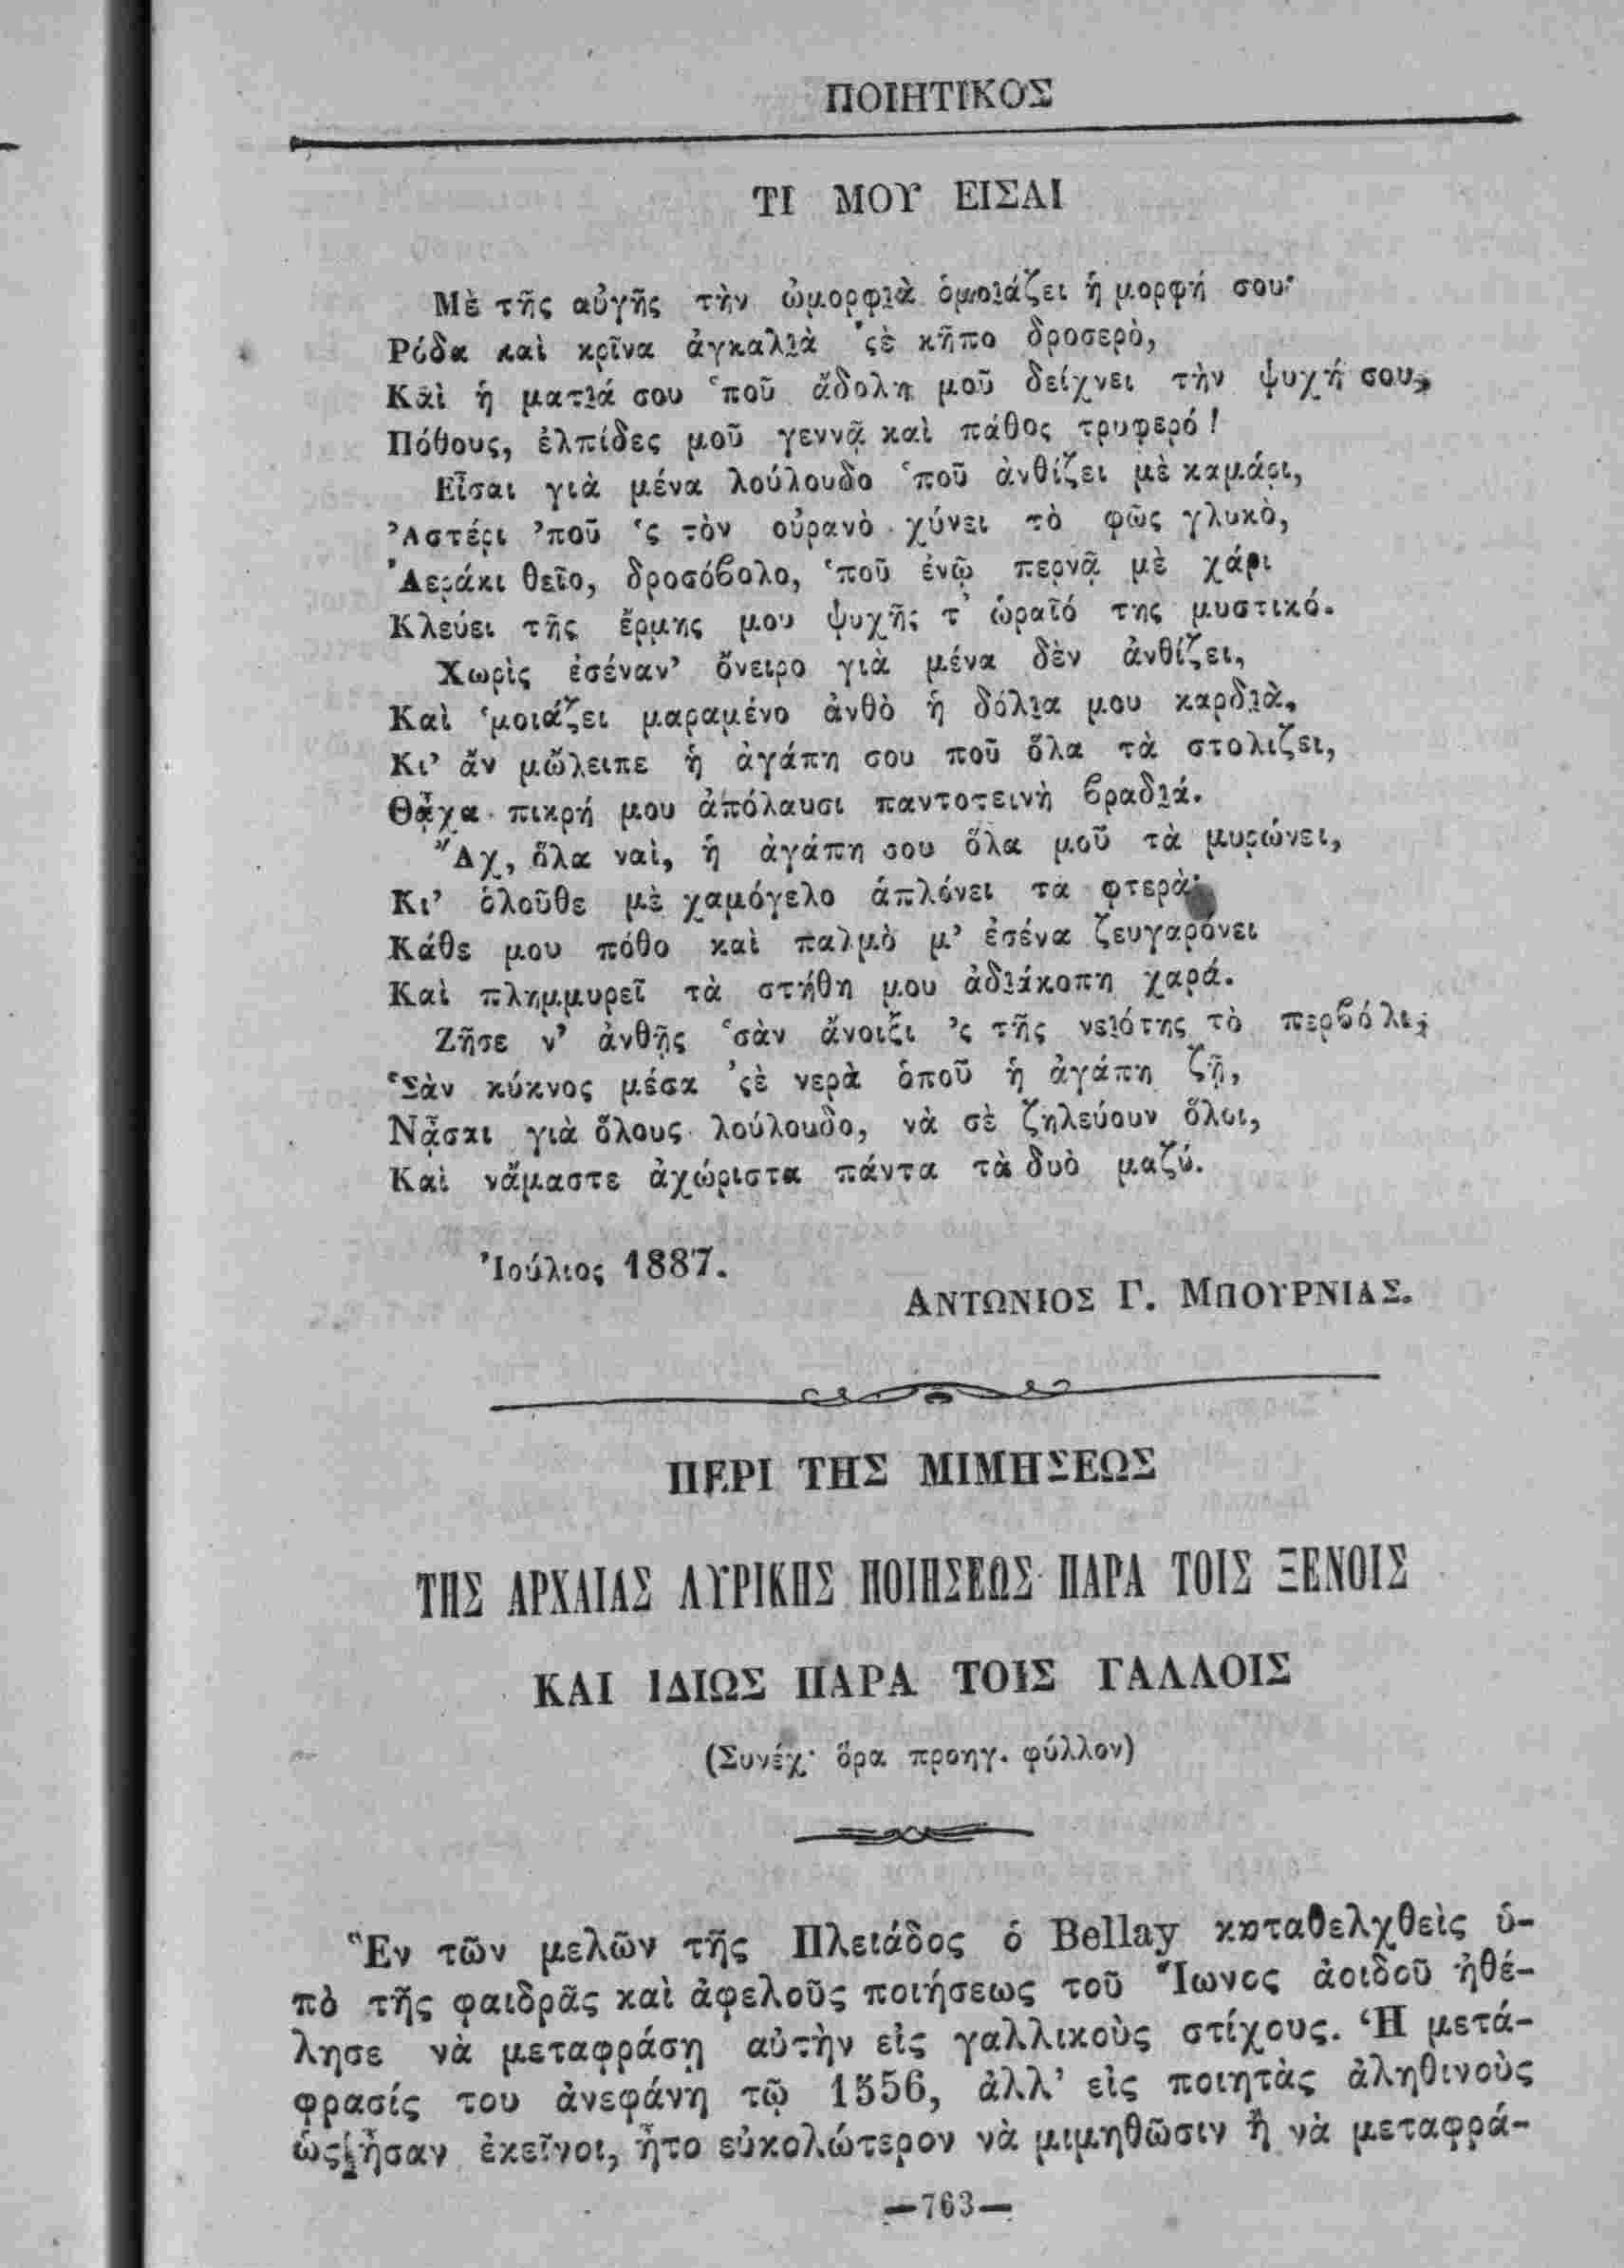 ΠΟΙΗΤΙΚΟΣ
ΤΙ ΜΟΥ ΕΙΣΑΙ
Μὲ τῆς αὐγῆς τὴν ὠμορφιὰ ὁμοιάζει ἡ μορφή σου·
Ρόδα καὶ κρῖνα ἀγκαλιὰ ’ςὲ κῆπο δροσερὸ,
Καὶ ἡ ματιά σου ‘ποῦ ἄδολη μοῦ δείχνει τὴν ψυχή σου,
Πόθους, ἐλπίδες μοῦ γεννᾷ καὶ πάθος τρυφερό!
Εἶσαι γιὰ μένα λούλουδο ‘ποῦ ἀνθίζει μὲ καμάρι,
Ἀστέρι ’ποῦ ‘ς τὸν οὐρανὸ χύνει τὸ φῶς γλυκὸ,
Ἀεράκι θεῖο, δροσόβολο, ‘ποῦ ἐνῷ περνᾷ μὲ χάρι
Κλεύει τῆς ἔρμης μου ψυχῆς τ’ ὡραῖό της μυστικό.
Χωρὶς ἐσέναν’ ὄνειρο γιὰ μένα δὲν ἀνθίζει,
Καὶ ‘μοιάζει μαραμένο ἀνθὸ ἡ δόλια μου καρδιὰ,
Κι’ ἄν μὤλειπε ἡ ἀγάπη σου ποῦ ὅλα τὰ στολιζει,
Θᾆχα πικρή μου ἀπόλαυσι παντοτεινὴ βραδιά.
Ἄχ, ὅλα ναὶ, ἡ ἀγάπη σου ὅλα μοῦ τὰ μυρώνει,
Κι’ ὁλοῦθε μὲ χαμόγελο ἁπλόνει τα φτερὰ·
Κάθε μου πόθο καὶ παλμὸ μ’ ἐσένα ζευγαρόνει
Καὶ πλημμυρεῖ τὰ στήθη μου ἀδιάκοπη χαρά.
Ζῆσε ν’ ἀνθῇς ‘σὰν ἄνοιξι ’ς τῆς νειότης τὸ περβόλι,
‘Σὰν κύκνος μέσα ’ςὲ νερὰ ὁποῦ ἡ ἀγάπη ζῇ,
Νᾆσαι γιὰ ὅλους λούλουδο, νὰ σὲ ζηλεύουν ὅλοι,
Καὶ νἄμαστε ἀχώριστα πάντα τὰ δυὸ μαζύ.
Ἰούλιος 1887.
ΑΝΤΩΝΙΟΣ Γ. ΜΠΟΥΡΝΙΑΣ.
ΠΕΡΙ ΤΗΣ ΜΙΜΗΣΕΩΣ
ΤΗΣ ΑΡΧΑΙΑΣ ΛΥΡΙΚΗΣ ΠΟΙΗΣΕΩΣ ΠΑΡΑ ΤΟΙΣ ΞΕΝΟΙΣ
ΚΑΙ ΙΔΙΩΣ ΠΑΡΑ ΤΟΙΣ ΓΑΛΛΟΙΣ
(Συνέχ· ὅρα προηγ. φύλλον)
Ἓν τῶν μελῶν τῆς Πλειάδος ὁ Bellay καταθελχθεὶς ὑ-
πὸ τῆς φαιδρᾶς καὶ ἀφελοῦς ποιήσεως τοῦ Ἴωνος ἀοιδοῦ ἠθέ-
λησε νὰ μεταφράσῃ αὐτὴν εἰς γαλλικοὺς στίχους. Ἡ μετά-
φρασίς του ἀνεφάνη τῷ 1556, ἀλλ’ εἰς ποιητὰς ἀληθινοὺς
ὡς ἦσαν ἐκεῖνοι, ἦτο εὐκολώτερον νὰ μιμηθῶσιν ἢ νὰ μεταφρά-
—763—